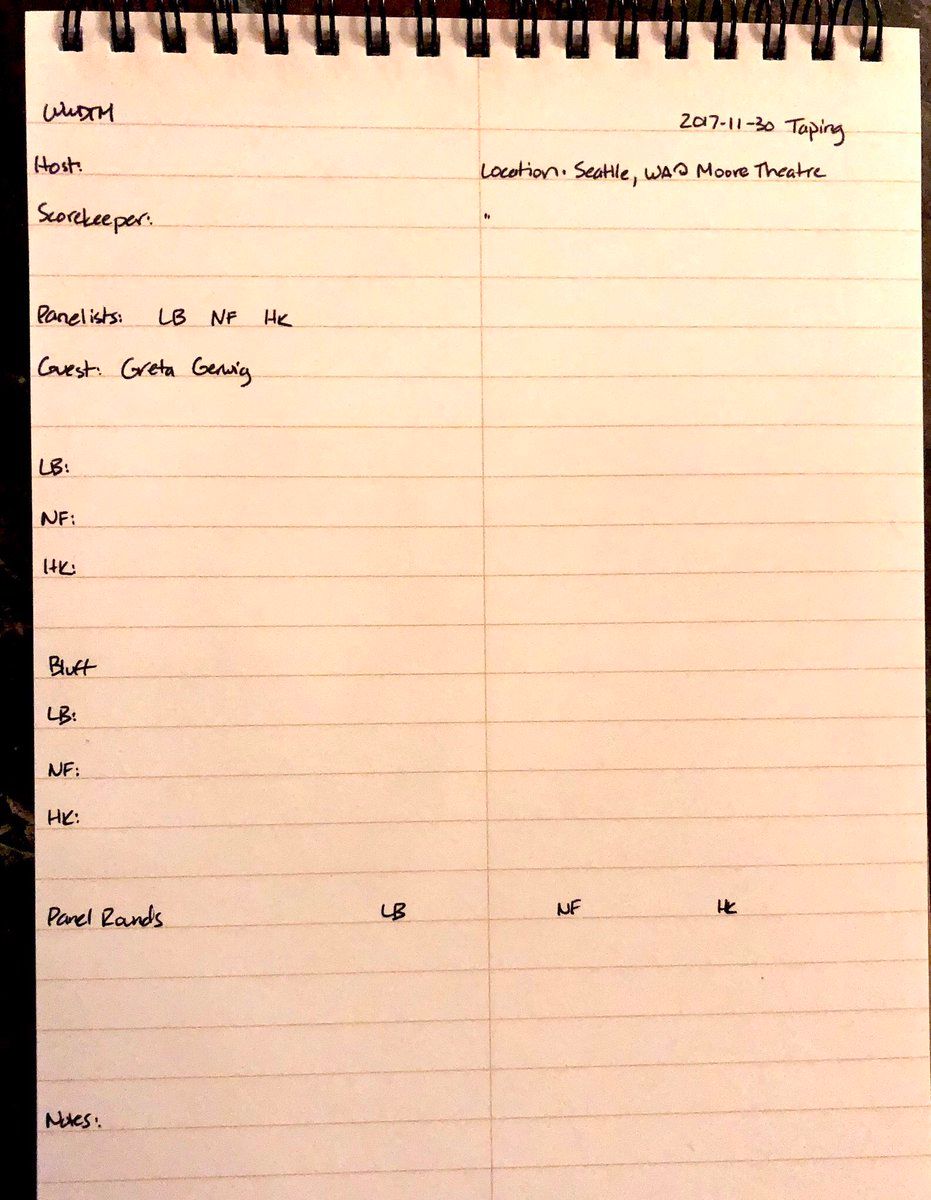 WWDTM 2017-11-30 Taping
Host: Location: Seattle, WA @ Moore Theatre
Scorekeeper: "
Panelists: LB NF HK
Guest: Greta Gerwig
LB:
NF:
HK:
Bluff
LB:
NF:
HK:
Panel Rounds LB NF HK
Notes: